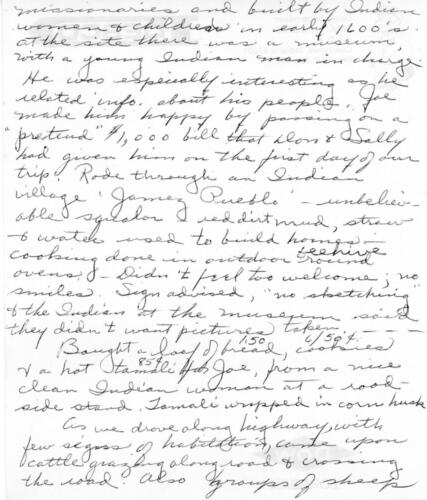 missionaries and built by Indian
women & children in early 1600's.
at the site there was a museum,
with a young Indian man in charge.
He was especially interesting as he
related info. about his people. Joe
made him happy by passing on a
"pretend" $1,000 bill that Don & Sally
had given him on the first day of our
trip. Rode through an Indian
village 'Jamez Pueblo' - unbeliev-
able squalor - red dirt mud, straw
& water used to build homes -
cooking done in outdoor beehive round
ovens - Didn't feel too welcome; no
smiles. Sign advised, "no sketching"
& the Indian at the museum said
they didn't want pictures taken. - - -
Bought a loaf of bread, 1.50 cookies 6/50¢
& a hot tamali 85¢ for Joe, from a nice
clean Indian woman at a road-
side stand. Tamali wrapped in corn husk
As we drove along highway, with
few signs of habitation, came upon
cattle grazing along road & crossing
the road. Also groups of sheep